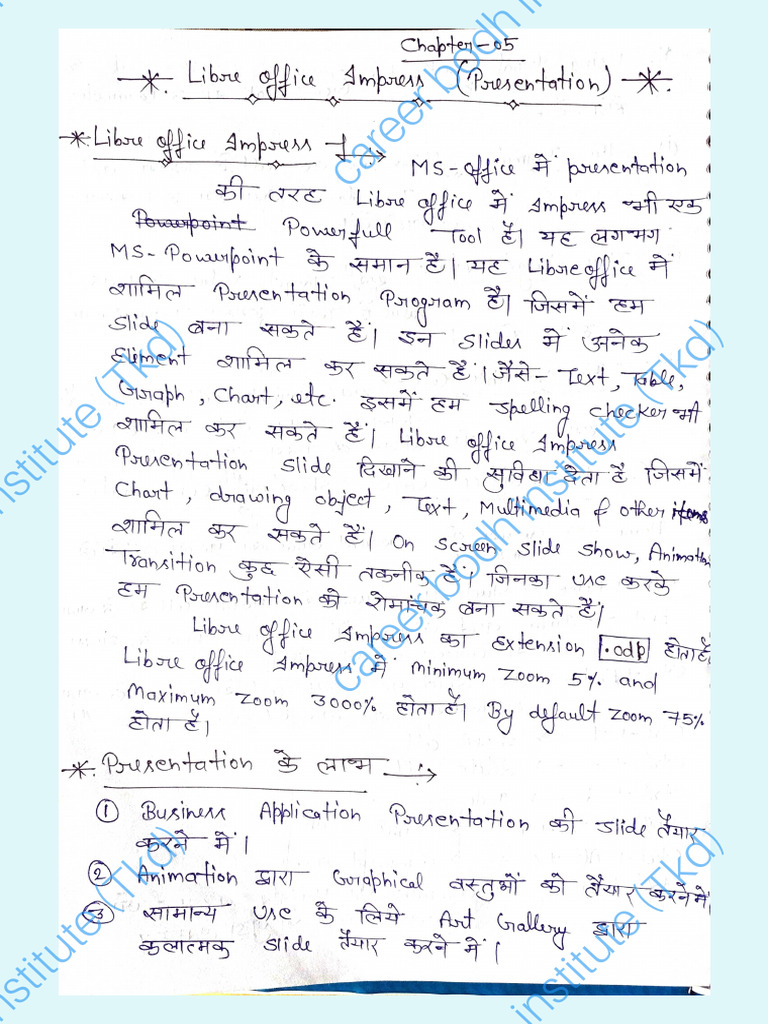 Chapter-05
Libre office Impress (Presentation)
Libre office Impress
MS-office में presentation
की तरह Libre office में Impress भी एक
Powerpoint Powerfull Tool है। यह लगभग
MS-Powerpoint के समान है। यह Libreoffice में
शामिल Presentation Program है। जिसमें हम
Slide बना सकते हैं। इन slides में अनेक
Element शामिल कर सकते हैं। जैसे- Text, Table,
Graph, Chart, etc. इसमें हम spelling checker भी
शामिल कर सकते हैं। Libre office Impress
Presentation slide दिखाने की सुविधा देता है जिसमें
Chart, drawing object, Text, Multimedia & other items
शामिल कर सकते हैं। On screen slide show, Animation
Transition कुछ ऐसी तकनीक हैं। जिनका use करके
हम Presentation को रोमांचक बना सकते हैं।
Libre office Impress का Extension .odp होता है
Libre office Impress में minimum zoom 5% and
Maximum zoom 3000% होता है। By default zoom 75%
होता है।
Presentation के लाभ
① Business Application Presentation की slide तैयार
करने में।
② Animation द्वारा Graphical वस्तुओं को तैयार करने में
③ सामान्य use के लिये Art Gallery द्वारा
कलात्मक slide तैयार करने में।
career bodh institute (Tkd)
career bodh institute (Tkd)
institute (Tkd)
institute (Tkd)
institute (Tkd)